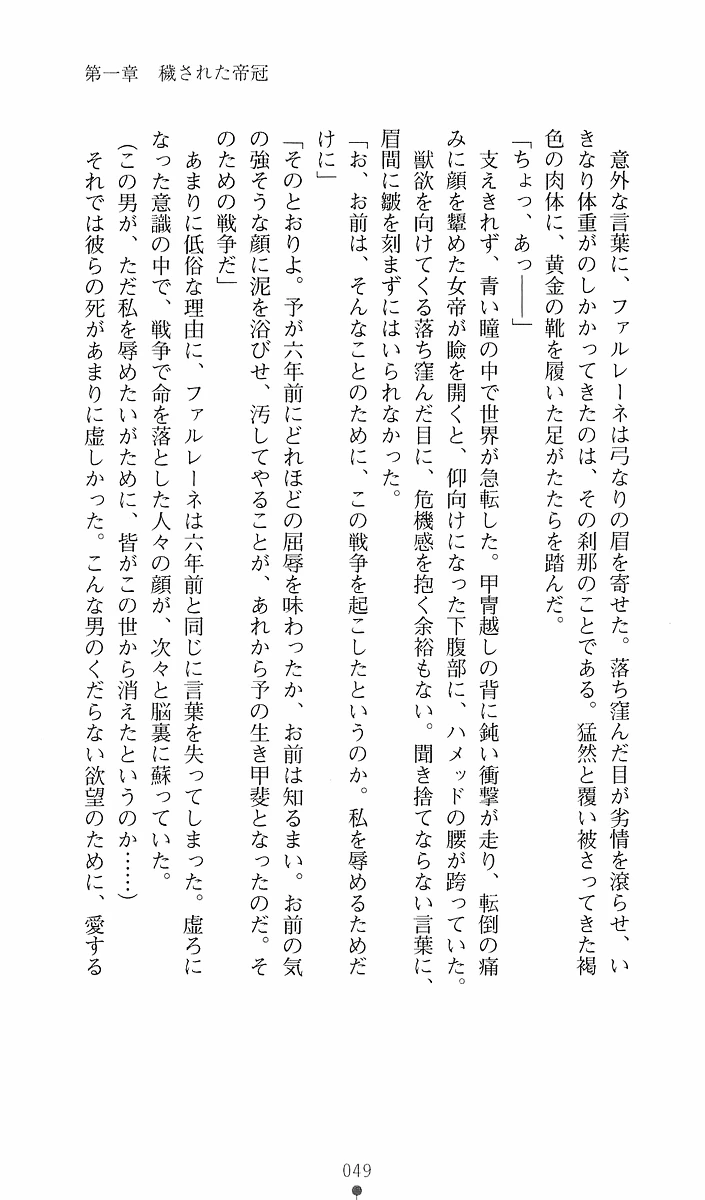 第一章　穢された帝冠
意外な言葉に、ファルレーネは弓なりの眉を寄せた。落ち窪んだ目が劣情を滾らせ、い
きなり体重がのしかかってきたのは、その刹那のことである。猛然と覆い被さってきた褐
色の肉体に、黄金の靴を履いた足がたたらを踏んだ。
「ちょっ、あっ――」
支えきれず、青い瞳の中で世界が急転した。甲冑越しの背に鈍い衝撃が走り、転倒の痛
みに顔を顰めた女帝が瞼を開くと、仰向けになった下腹部に、ハメッドの腰が跨っていた。
獣欲を向けてくる落ち窪んだ目に、危機感を抱く余裕もない。聞き捨てならない言葉に、
眉間に皺を刻まずにはいられなかった。
「お、お前は、そんなことのために、この戦争を起こしたというのか。私を辱めるためだ
けに」
「そのとおりよ。予が六年前にどれほどの屈辱を味わったか、お前は知るまい。お前の気
の強そうな顔に泥を浴びせ、汚してやることが、あれから予の生き甲斐となったのだ。そ
のための戦争だ」
あまりに低俗な理由に、ファルレーネは六年前と同じに言葉を失ってしまった。虚ろに
なった意識の中で、戦争で命を落とした人々の顔が、次々と脳裏に蘇っていた。
（この男が、ただ私を辱めたいがために、皆がこの世から消えたというのか……）
それでは彼らの死があまりに虚しかった。こんな男のくだらない欲望のために、愛する
049